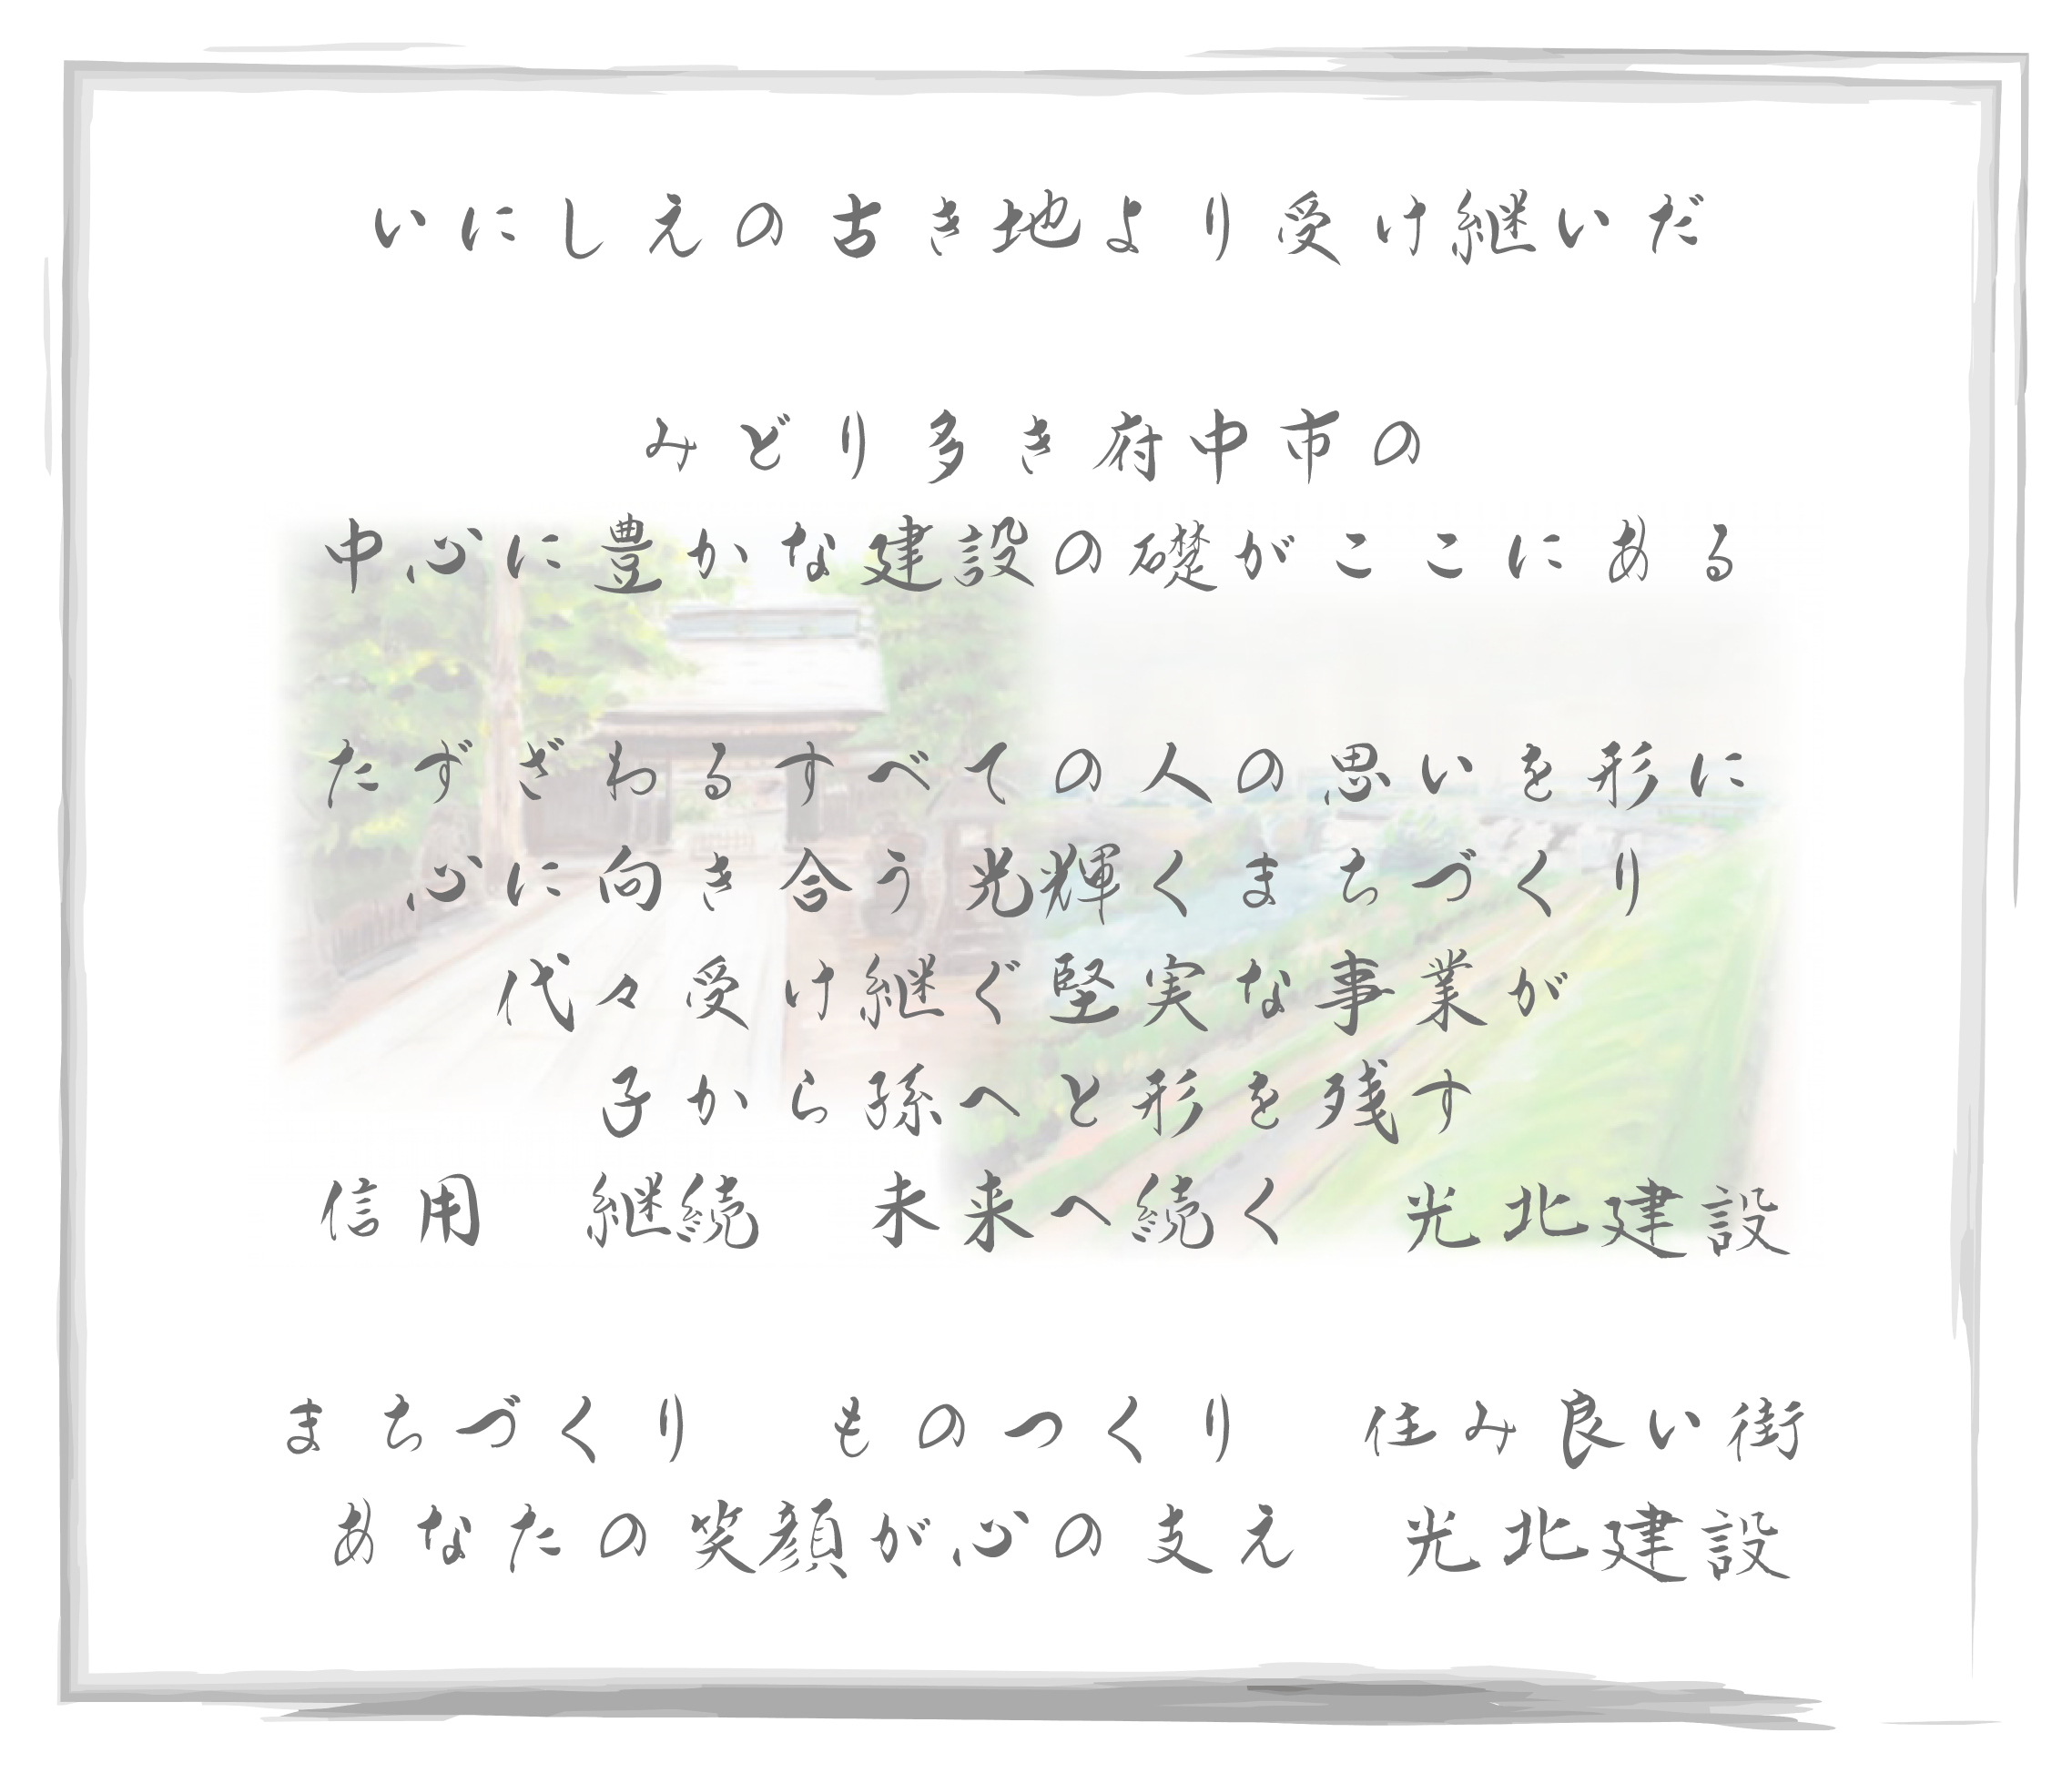 いにしえの古き地より受け継いだ
みどり多き府中市の
中心に豊かな建設の礎がここにある
たずざわるすべての人の思いを形に
心に向き合う光輝くまちづくり
代々受け継ぐ堅実な事業が
子から孫へと形を残す
信用　継続　未来へ続く　光北建設
まちづくり　ものつくり　住み良い街
あなたの笑顔が心の支え　光北建設